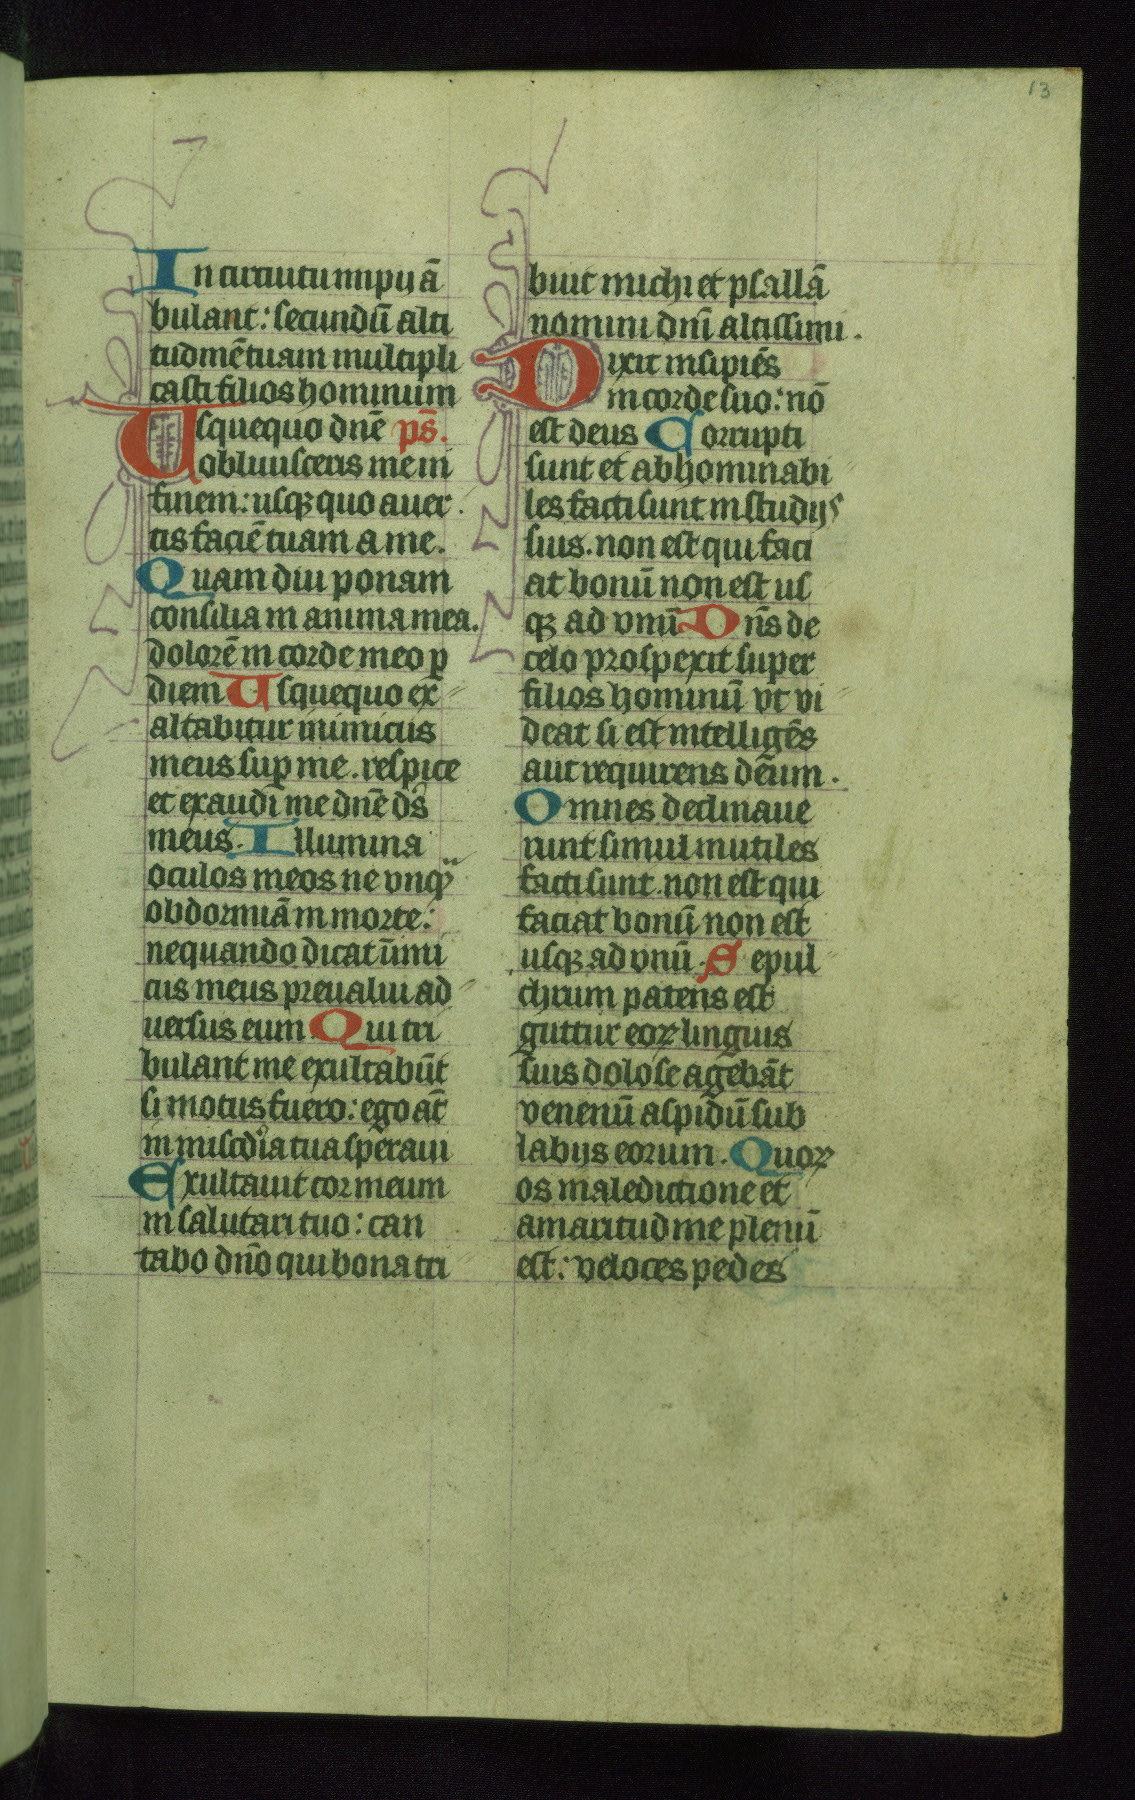 13
In circuitu impij ā
bulant: secundū alti
tudinē tuam multipli
casti filios hominum
Usquequo dnē ps̄.
obliuisceris me in
finem: usqꝫ quo auer
tis faciē tuam a me.
Quam diu ponam
consilia in anima mea.
dolorē in corde meo ꝑ
diem Usquequo ex
altabitur inimicus
meus suꝑ me. respice
et exaudi me dnē ds̄
meus. Illumina
oculos meos ne vnqͣ
obdormiā in morte:
nequando dicat īimi
cus meus preualui ad
uersus eum Qui tri
bulant me exultabūt
si motus fuero: ego at̄
in misc̄dia tua speraui
Exultauit cor meum
in salutari tuo: can
tabo dn̄o qui bona tri
buit michi et psallā
nomini dnī altissimi.
Dixit insipiēs
in corde suo: nō
est deus Corrupti
sunt et abhominabi
les facti sunt in studijs
suis. non est qui faci
at bonū non est us
qꝫ ad vnū Dn̄s de
celo prospexit super
filios hominū vt vi
deat si est intelligēs
aut requirens deum.
Omnes declinaue
runt simul inutiles
facti sunt. non est qui
faciat bonū non est
usqꝫ ad vnū. Sepul
chrum patens est
guttur eoꝝ linguis
suis dolose agebāt
venenū aspidū sub
labijs eorum. Quoꝝ
os maledictione et
amaritudine plenū
est: veloces pedes